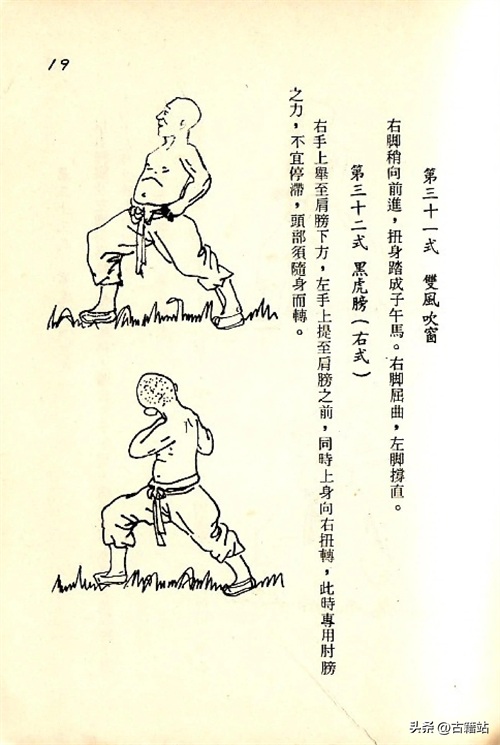 19
第三十一式　雙風吹窗
右脚稍向前進，扭身踏成子午馬。右脚屈曲，左脚撐直。
第三十二式　黑虎膀（右式）
右手上舉至肩膀下方，左手上提至肩膀之前，同時上身向右扭轉，此時專用肘膀
之力，不宜停滯，頭部須隨身而轉。
头条 @古籍站